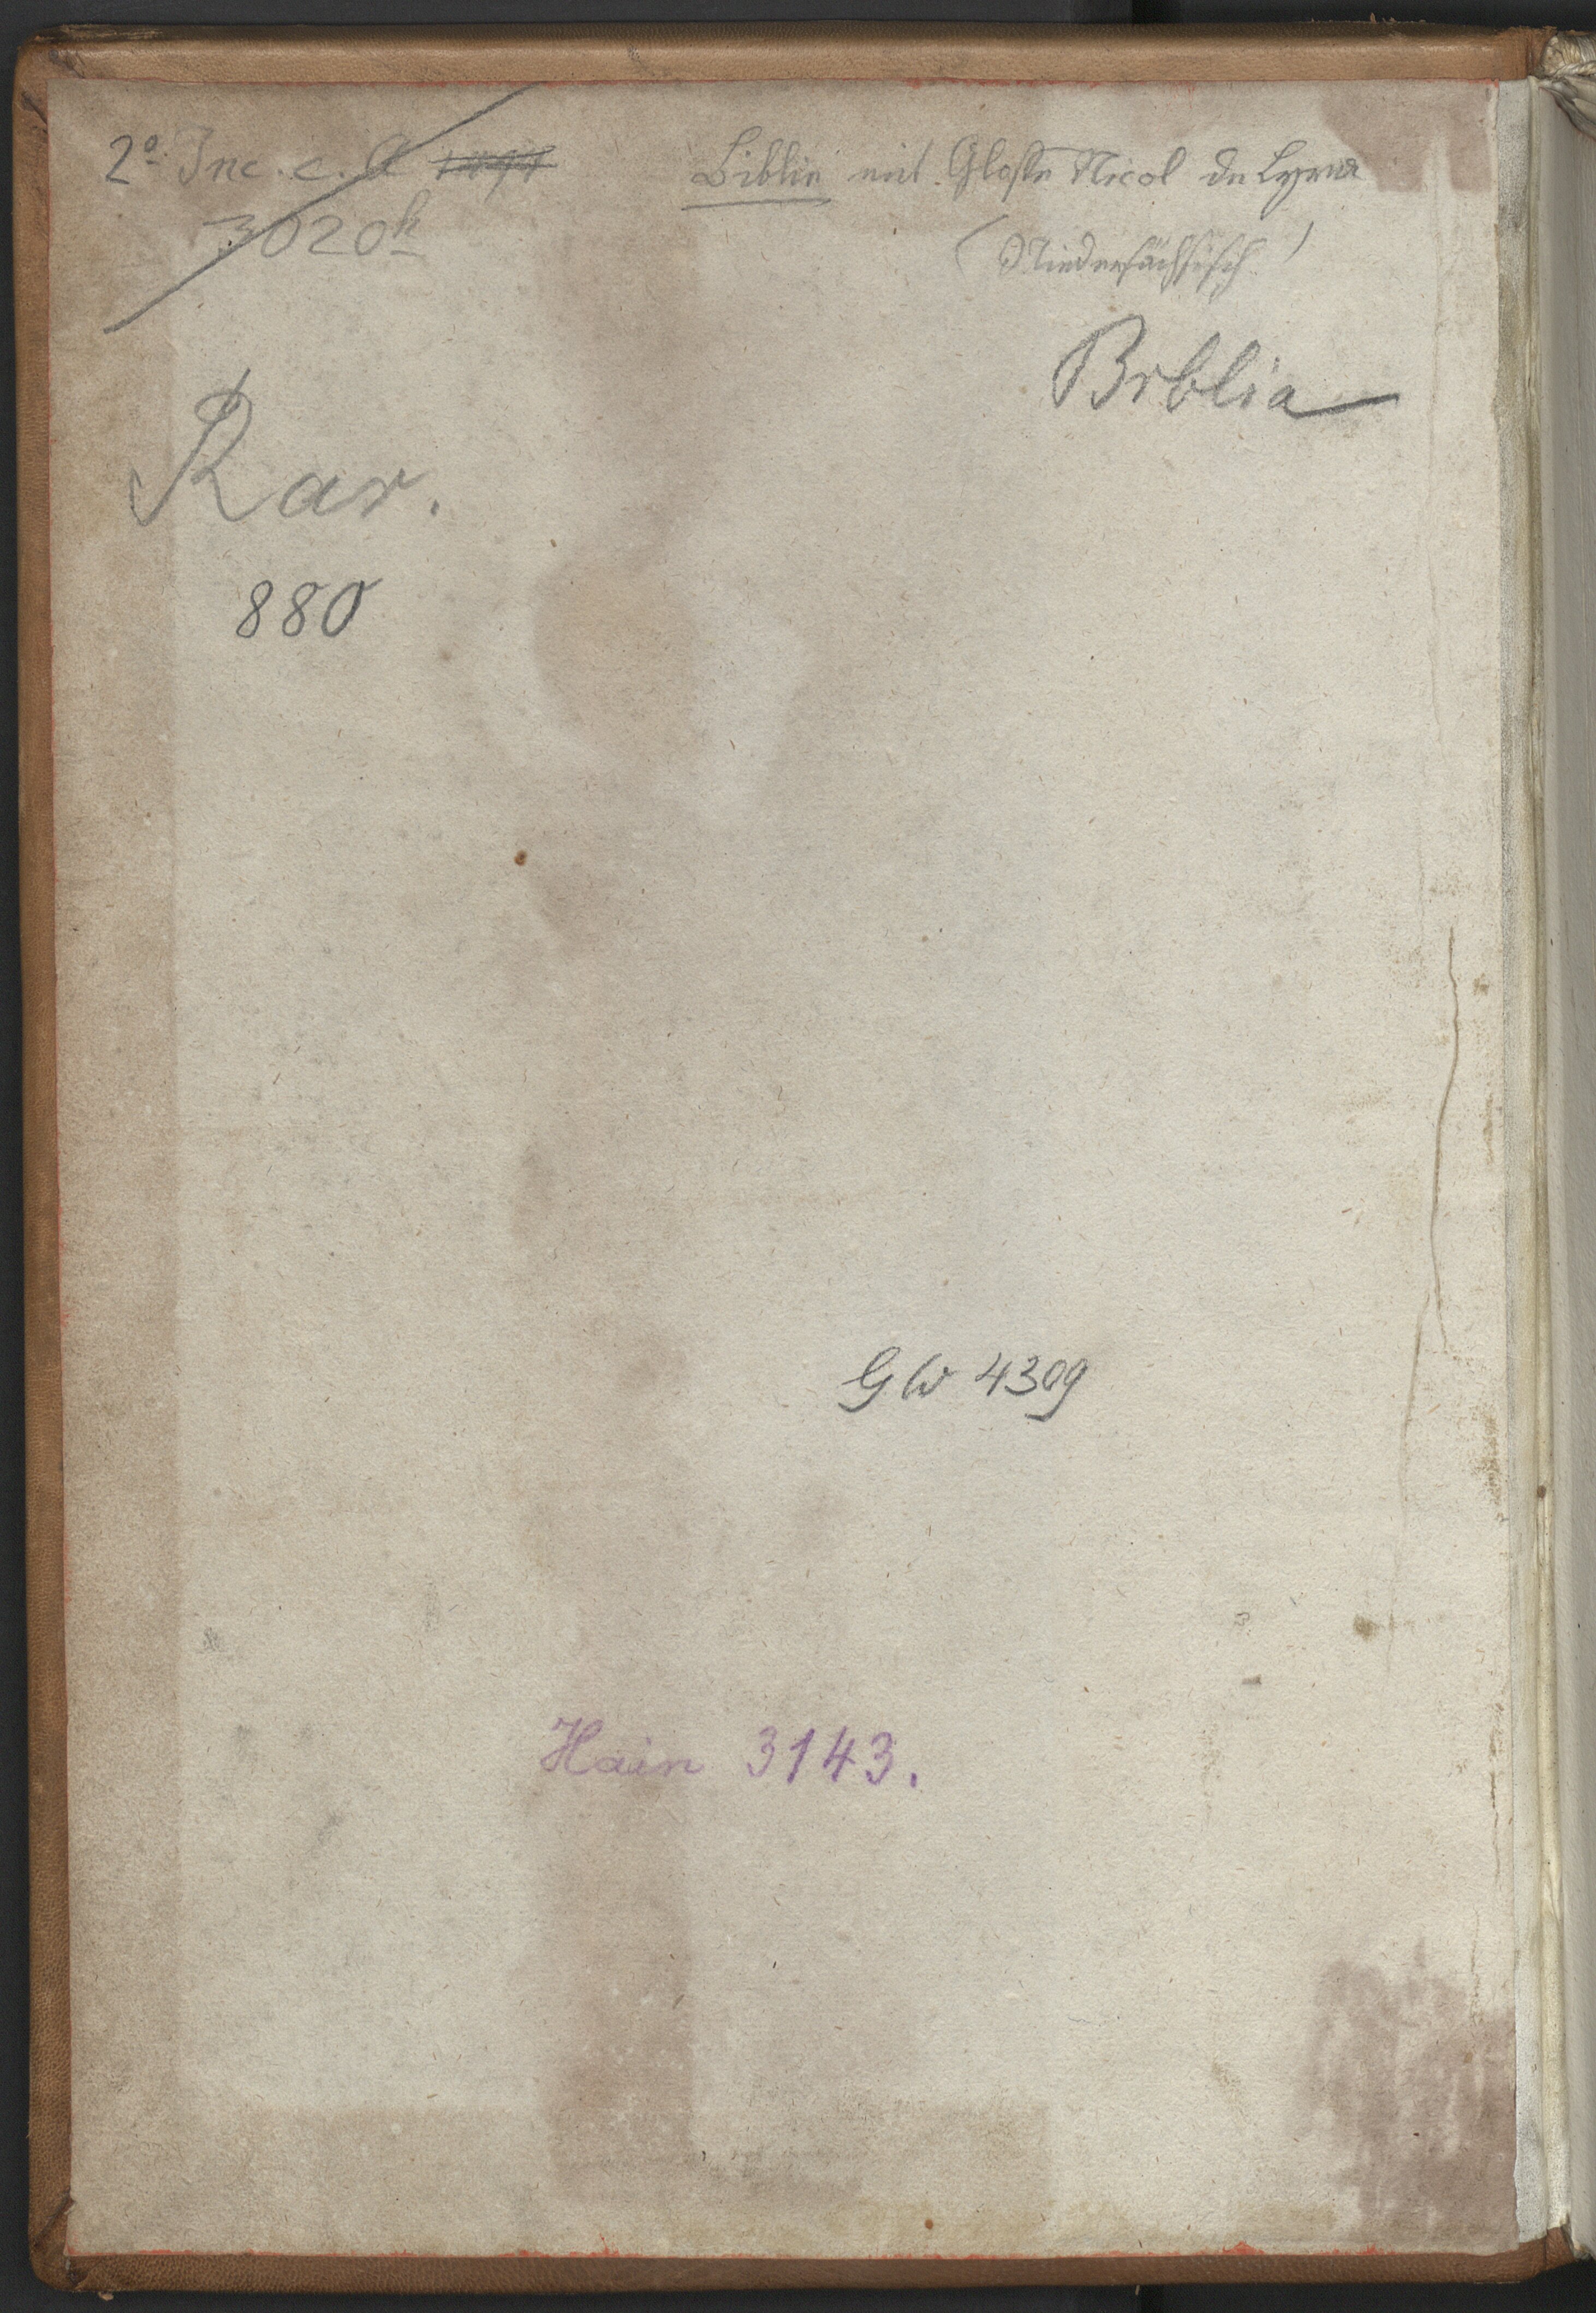 2º Inc. c. a
3020k
Biblia mit Glosse Nicol de Lyra
(Niedersächsisch)
Biblia
Rar.
880
GW 4309
Hain 3143.